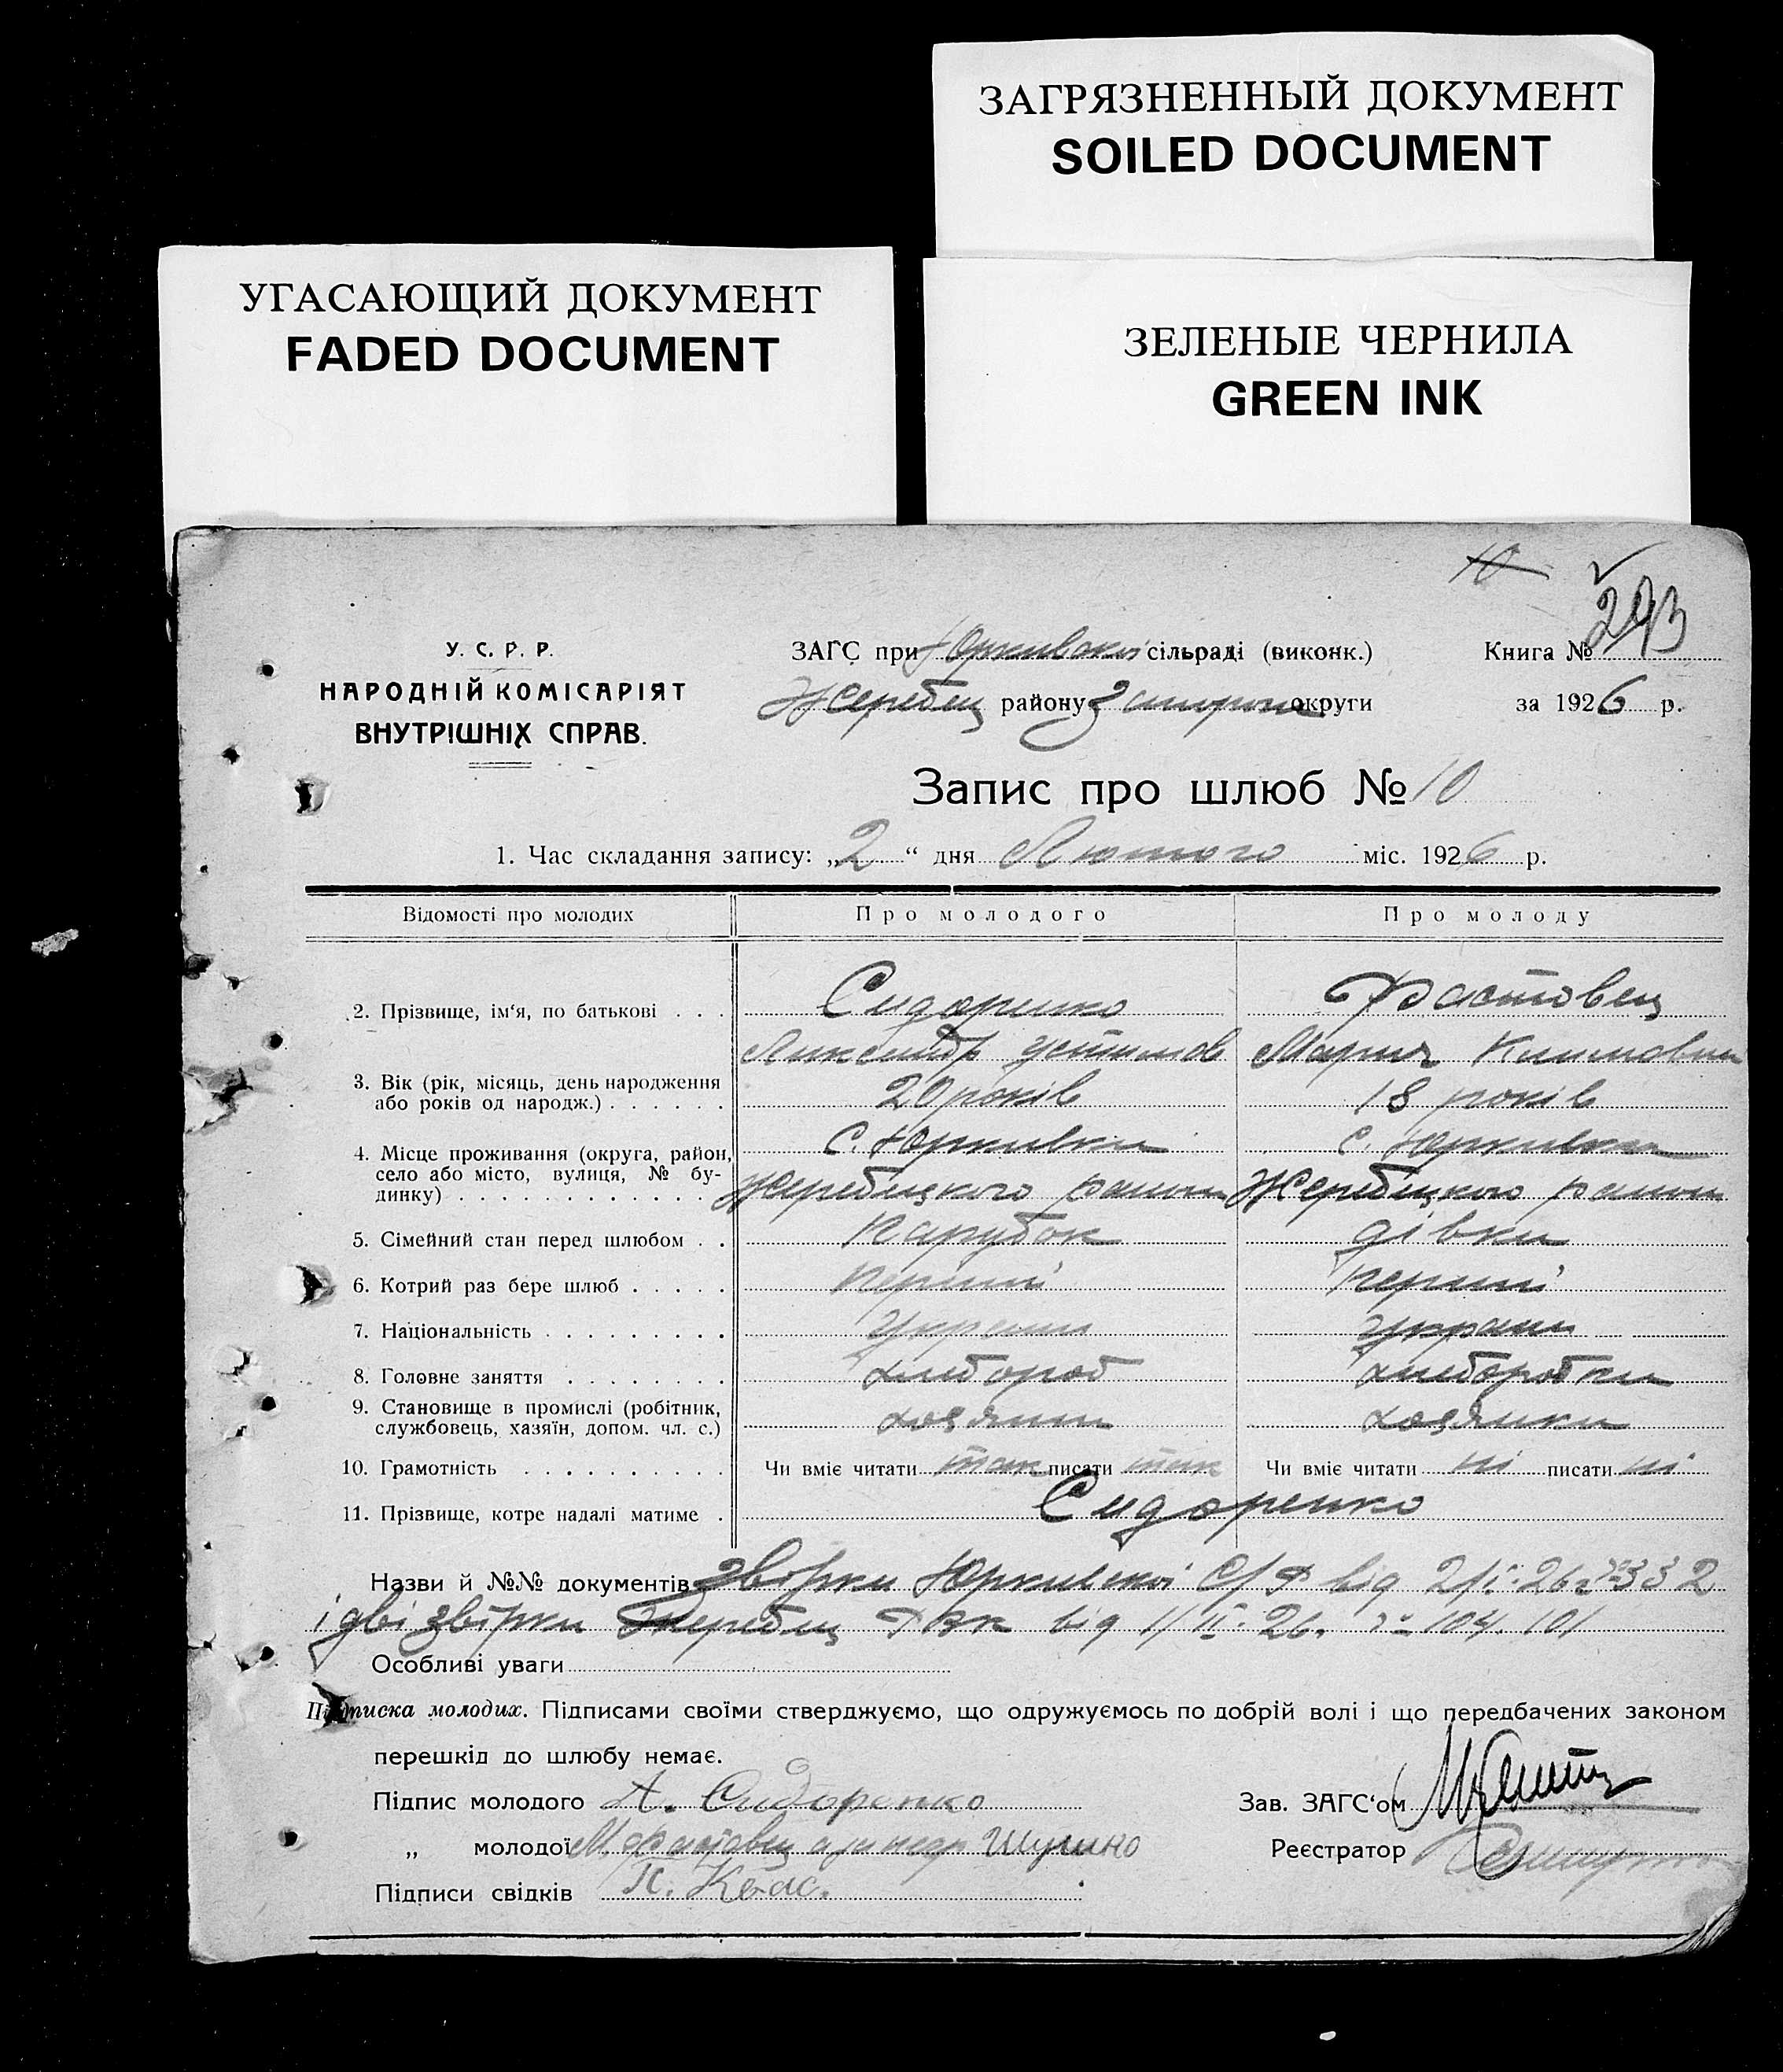 ЗАГРЯЗНЕННЫЙ ДОКУМЕНТ
SOILED DOCUMENT
УГАСАЮЩИЙ ДОКУМЕНТ
FADED DOCUMENT
ЗЕЛЕНЫЕ ЧЕРНИЛА
GREEN INK
10
293
У. С. Р. Р.
НАРОДНІЙ КОМІСАРІЯТ
ВНУТРІШНІХ СПРАВ.
ЗАГС при Юркивской сільраді (виконк.)
Жеребец району Запорож округи
Книга №
за 1926 р.
Запис про шлюб № 10
1. Час складання запису: „2“ дня Лютого міс. 1926 р.
Відомості про молодих Про молодого Про молоду
2. Прізвище, ім‘я, по батькові . . . Сидоренко Фастовец
Александр Устимов Мария Климовна
3. Вік (рік, місяць, день народження
або років од народж.) . . . . . . 20 років 18 років
4. Місце проживання (округа, район,
село або місто, вулиця, № бу-
динку) . . . . . . . . . . . . С. Юркивка С. Юркивка
Жеребецкого району Жеребецкого району
5. Сімейний стан перед шлюбом . . Парубок дівка
6. Котрий раз бере шлюб . . . . . Перший перший
7. Національність . . . . . . . . . Украин украин
8. Головне заняття . . . . . . . . хлибороб хлиборобка
9. Становище в промислі (робітник,
службовець, хазяїн, допом. чл. с.) хозяин хозяйка
10. Грамотність . . . . . . . . . . Чи вміє читати так писати так Чи вміє читати ні писати ні
11. Прізвище, котре надалі матиме . Сидоренко
Назви й №№ документів звірки Юркивской С/Р від 2/II-26 г № 332
і дві звірки Жеребец РВК від 1/II-26. № 104. 101
Особливі уваги
Підписка молодих. Підписами своїми стверджуємо, що одружуємось по добрій волі і що передбачених законом
перешкід до шлюбу немає.
Підпис молодого А. Сидоренко
Зав. ЗАГС‘ом
„ молодої М. Фастовец а за неер
Реєстратор
Підписи свідків